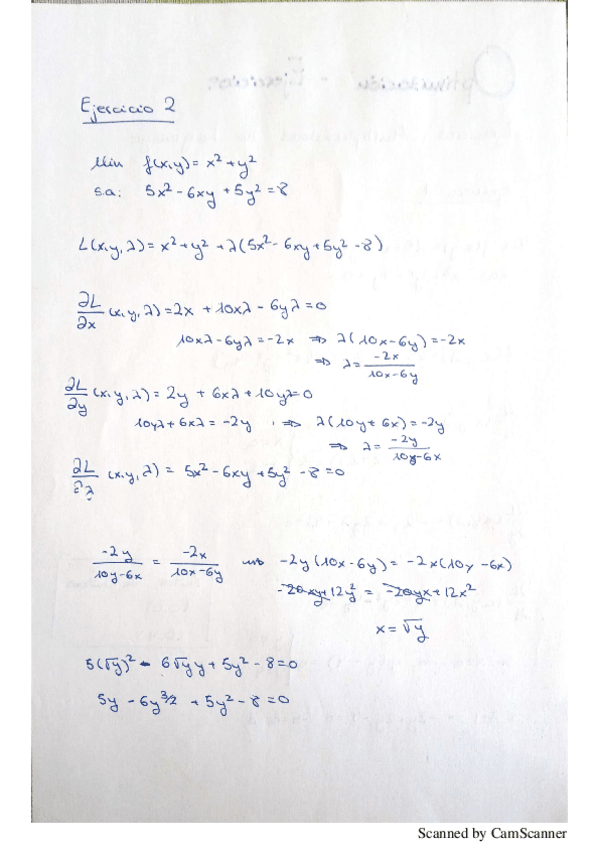 Ejercicio 2
Min f(x,y) = x² + y²
s.a: 5x² - 6xy + 5y² = 8
L(x,y,λ) = x² + y² + λ(5x² - 6xy + 5y² - 8)
∂L/∂x (x,y,λ) = 2x + 10xλ - 6yλ = 0
10xλ - 6yλ = -2x ⇒ λ(10x - 6y) = -2x
⇒ λ = -2x/(10x - 6y)
∂L/∂y (x,y,λ) = 2y + 6xλ + 10yλ = 0
10yλ + 6xλ = -2y ⇒ λ(10y + 6x) = -2y
⇒ λ = -2y/(10y - 6x)
∂L/∂λ (x,y,λ) = 5x² - 6xy + 5y² - 8 = 0
-2y/(10y - 6x) = -2x/(10x - 6y) ⇒ -2y(10x - 6y) = -2x(10y - 6x)
-20xy + 12y² = -20yx + 12x²
x = √y
5(√y)² - 6√y y + 5y² - 8 = 0
5y - 6y^3/2 + 5y² - 8 = 0
Scanned by CamScanner